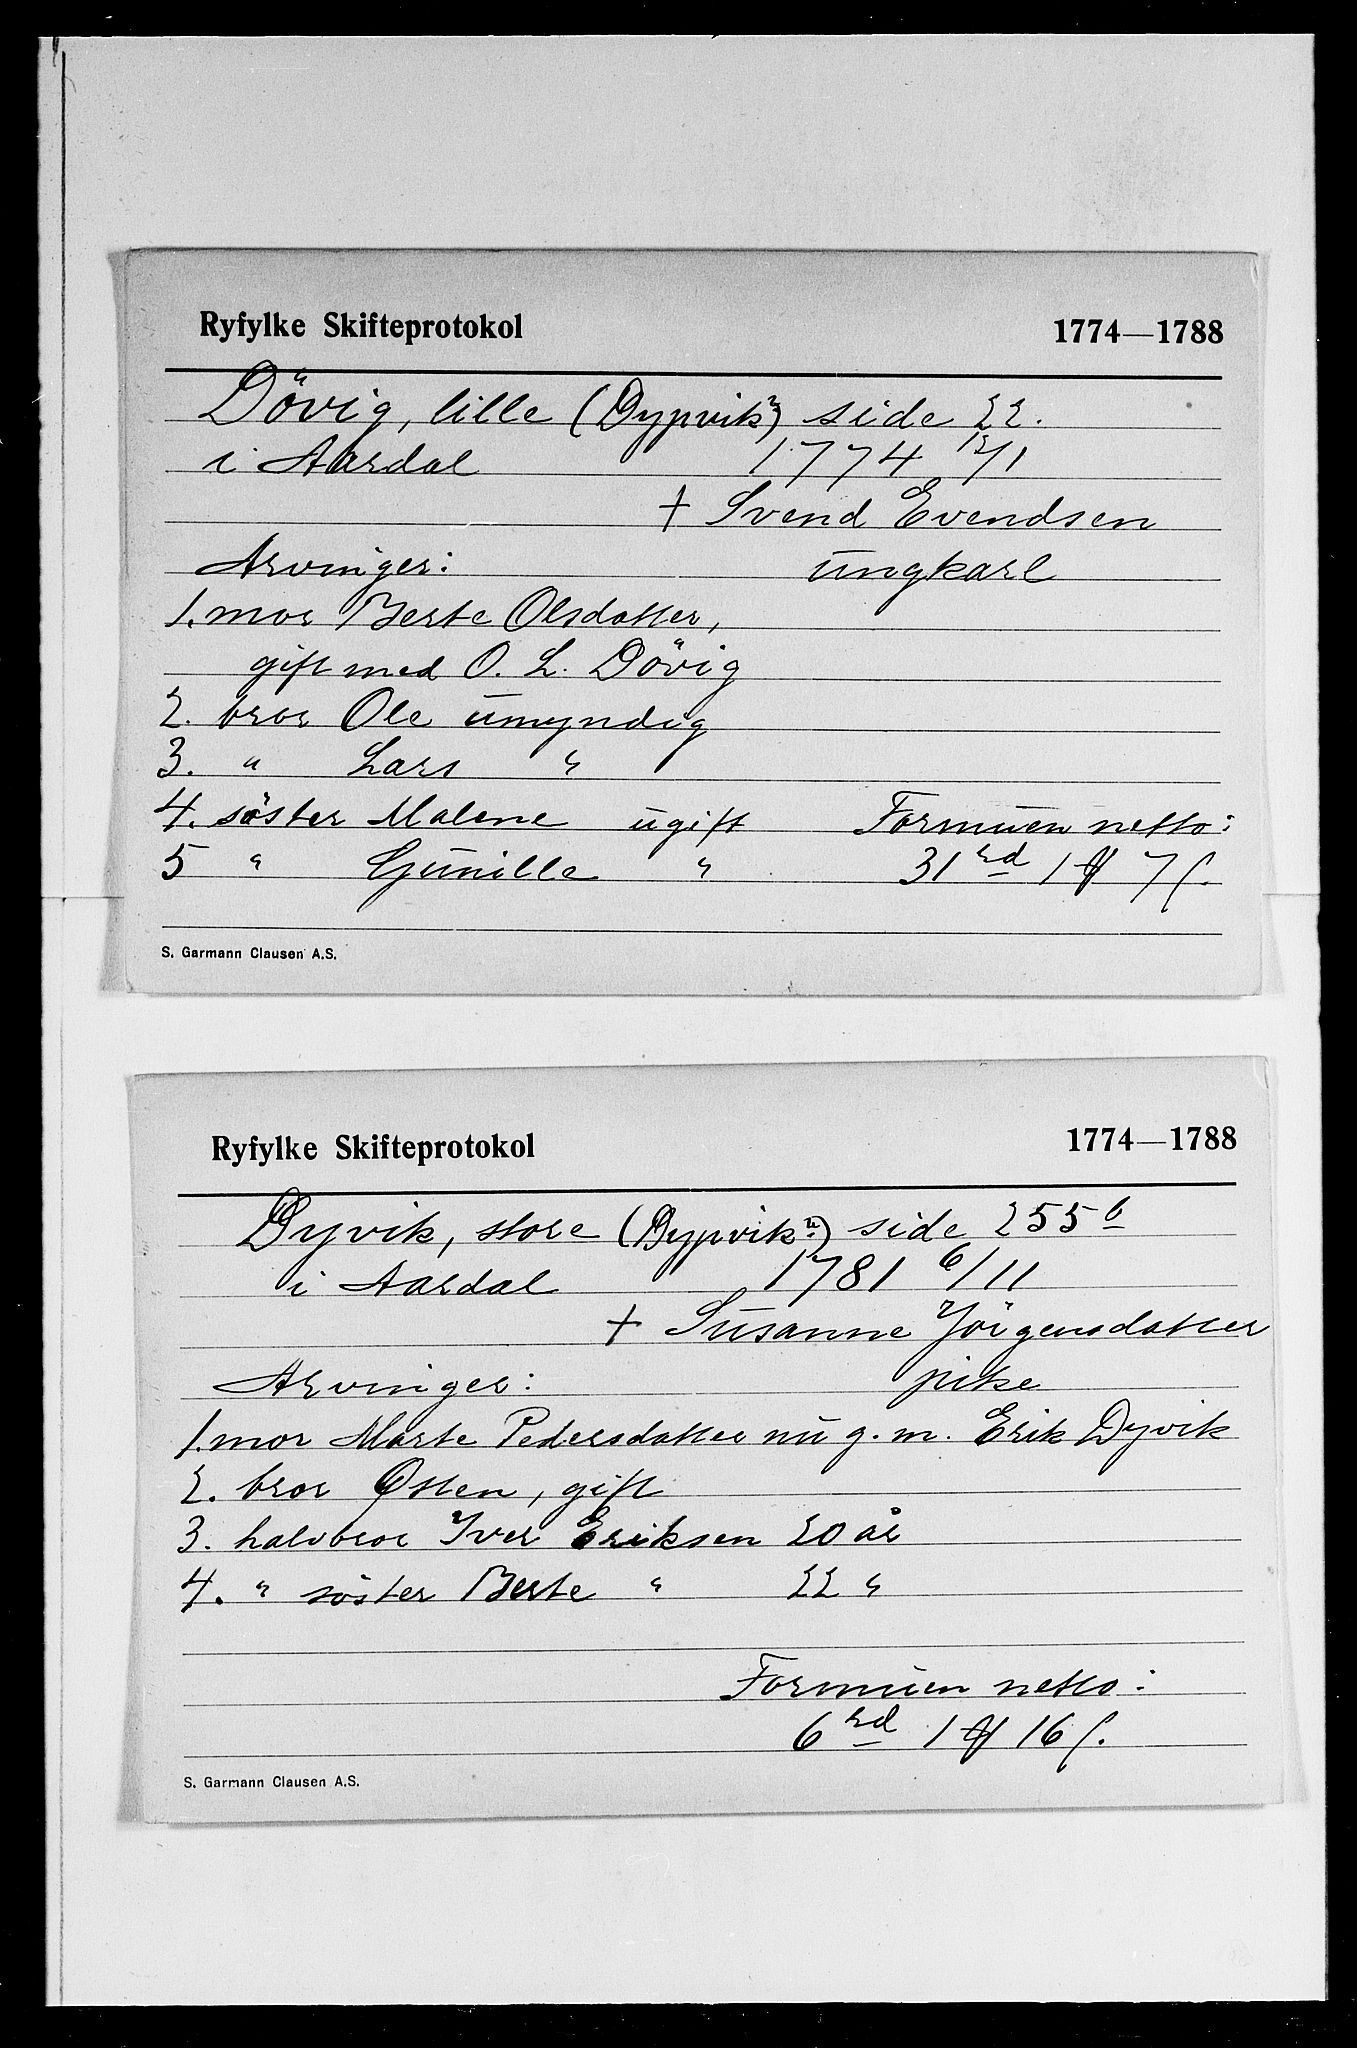 Ryfylke Skifteprotokol 1774—1788
Dövig, lille (Dypvik?) side 22.
i Aardal 1774 12/1
+ Svend Evendsen
Arvinger: ungkarl
1. mor Berte Olsdatter,
gift med O. L. Dövig
2. bror Ole umyndig
3. " Lars "
4. söster Malene ugift Formuen netto:
5 " Gunille " 31 rd 1 ₰ 7 s.
S. Garmann Clausen A.S.
Ryfylke Skifteprotokol 1774—1788
Dyvik, store (Dypvik?) side 255 b
i Aardal 1781 6/11
+ Susanne Jörgensdatter
Arvinger: pike
1. mor Marte Pedersdatter nu g. m. Erik Dyvik
2. bror Østen, gift
3. halvbror Iver Eriksen 20 år
4. " söster Berte " 22 "
Formuen netto:
6 rd 1 ₰ 16 s.
S. Garmann Clausen A.S.